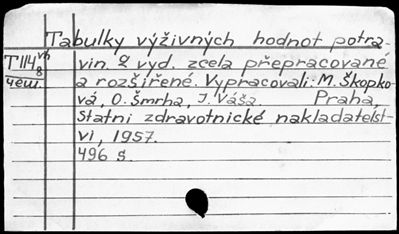 Tabulky výživných hodnot potra-
T 114 vh vin. 2 vyd. zcela přepracované
8 a rozšířené. Vypracovali: M. Škopko-
чеш. vá, O. Šmrha, J. Váša. Praha,
Statni zdravotnické nakladatelst-
vi, 1957.
496 s.